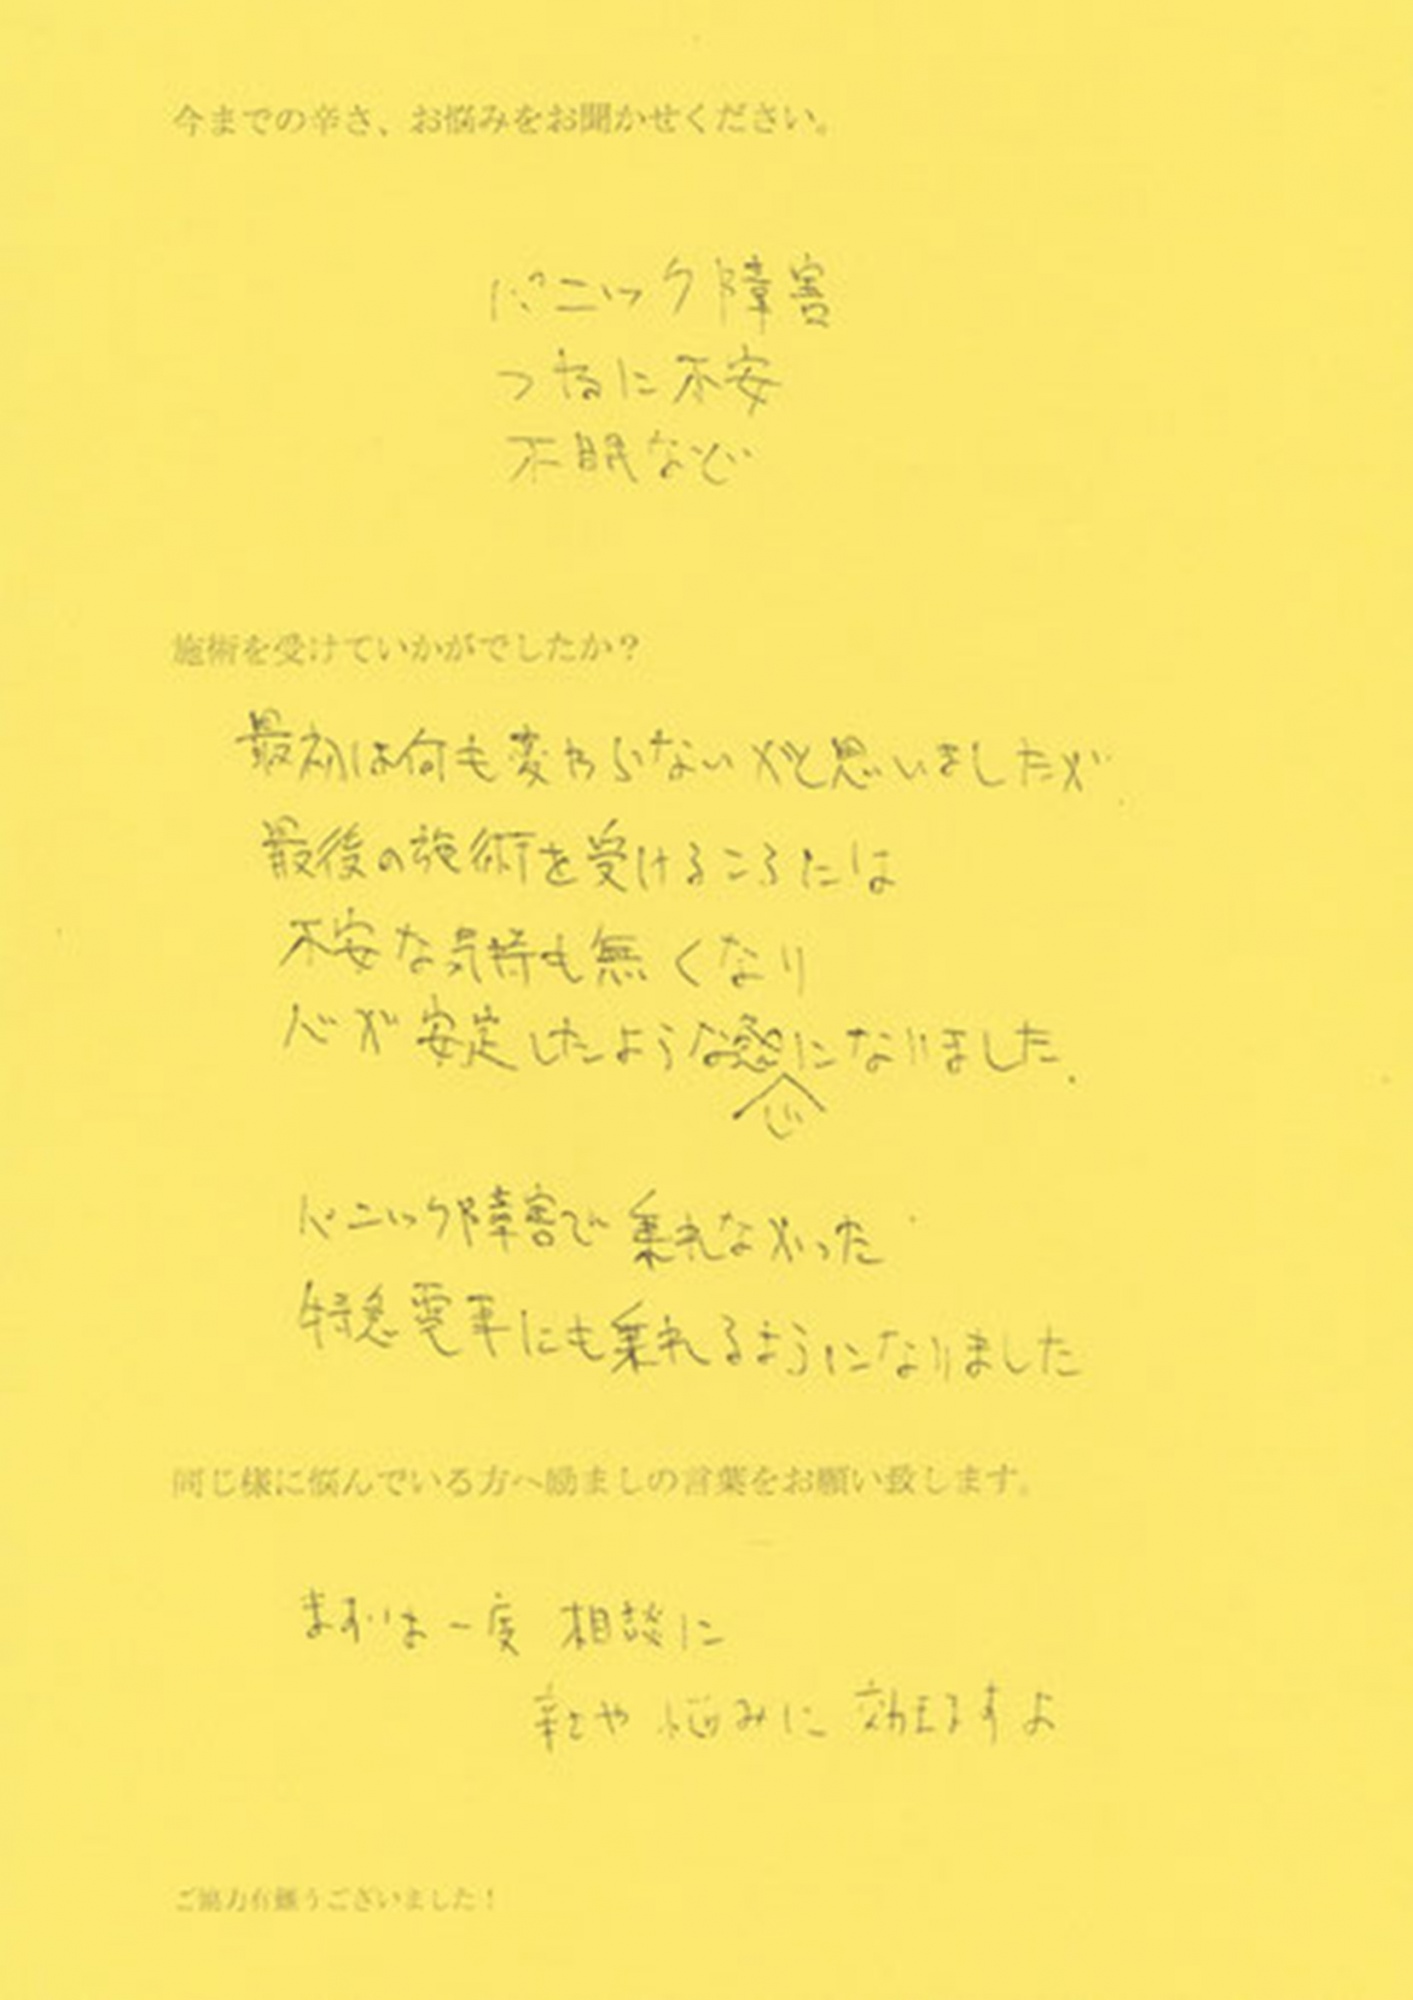 今までの辛さ、お悩みをお聞かせください。
パニック障害
つねに不安
不眠など
施術を受けていかがでしたか?
最初は何も変わらないかと思いましたが
最後の施術を受けるころには
不安な気持も無くなり
心が安定したような感じになりました.
パニック障害で乗れなかった
特急電車にも乗れるようになりました
同じ様に悩んでいる方へ励ましの言葉をお願い致します。
まずは一度 相談に
辛さや 悩みに 効きますよ
ご協力有難うございました!